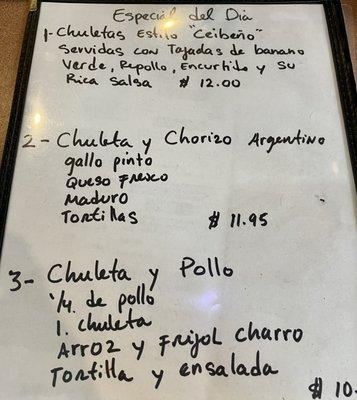 Especial del Dia
1- Chuletas Estilo "Ceibeño"
Servidas con Tajadas de banano
Verde, Repollo, Encurtido y su
Rica Salsa $ 12.00
2- Chuleta y Chorizo Argentino
gallo pinto
Queso Fresco
Maduro
Tortillas $ 11.95
3- Chuleta y Pollo
1/4. de pollo
1. chuleta
Arroz y Frijol Charro
Tortilla y ensalada
$ 10.